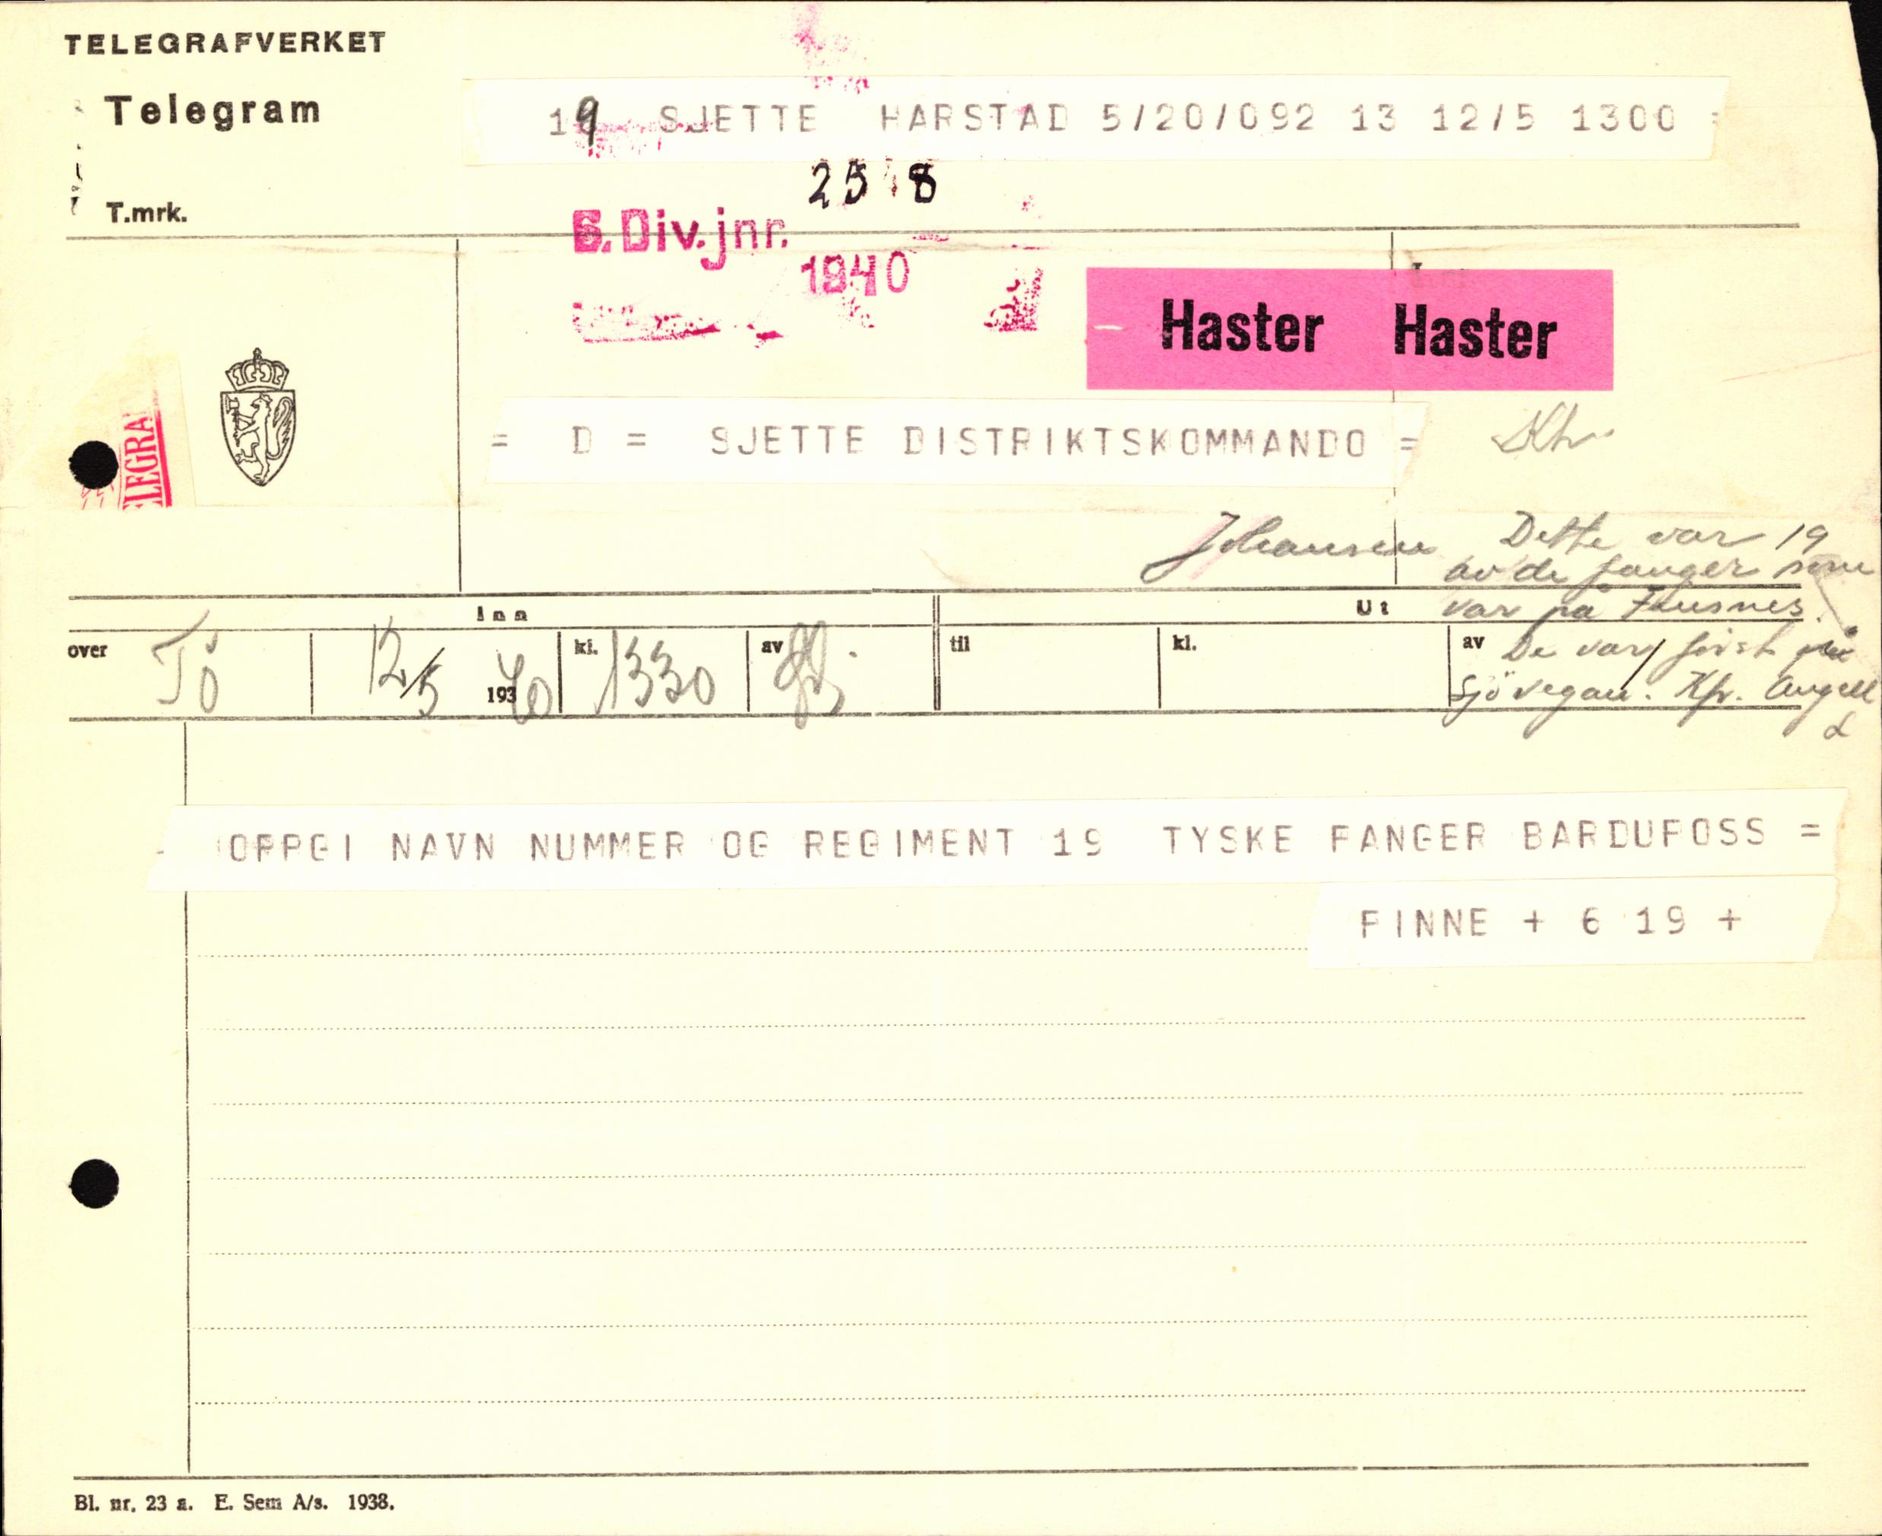 TELEGRAFVERKET
Telegram
19 SJETTE HARSTAD 5/20/092 13 12/5 1300 =
T.mrk.
6. Div. jnr. 2518
1940
Haster Haster
= D = SJETTE DISTRIKTSKOMMANDO =
TELEGRA
Johansen
Dette var 19
av de fanger som
var på Finsnes.
De var først på
Sjøvegan. Kfr. Angell
Inn
Ut
over Tö 12/5 1940 kl. 1330 av
til kl. av
OPPGI NAVN NUMMER OG REGIMENT 19 TYSKE FANGER BARDUFOSS =
FINNE + 6 19 +
Bl. nr. 23 a. E. Sem A/s. 1938.